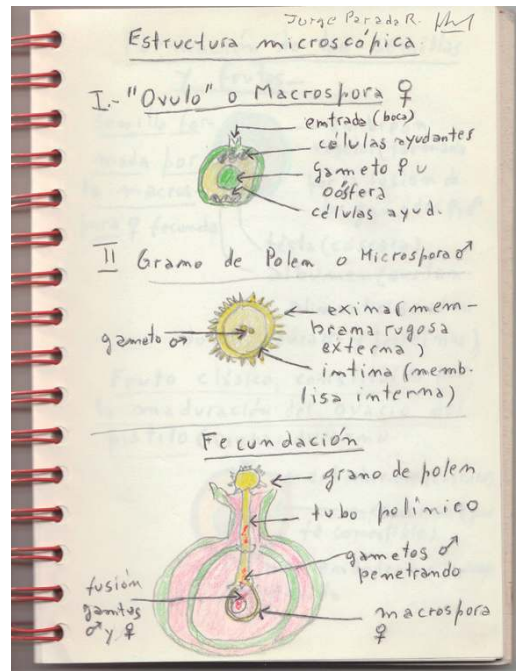 Jorge Parada R.
Estructura microscópica
I.- "Ovulo" o Macrospora ♀
entrada (boca)
células ayudantes
gameto ♀ u
oósfera
células ayud.
II Grano de Polem o Microspora ♂
gameto ♂
exima (mem-
brama rugosa
externa)
imtima (memb.
lisa interna)
Fecundación
grano de polem
tubo polínico
gametos ♂
penetrando
fusión
gamtos
♂ y ♀
macrospora
♀